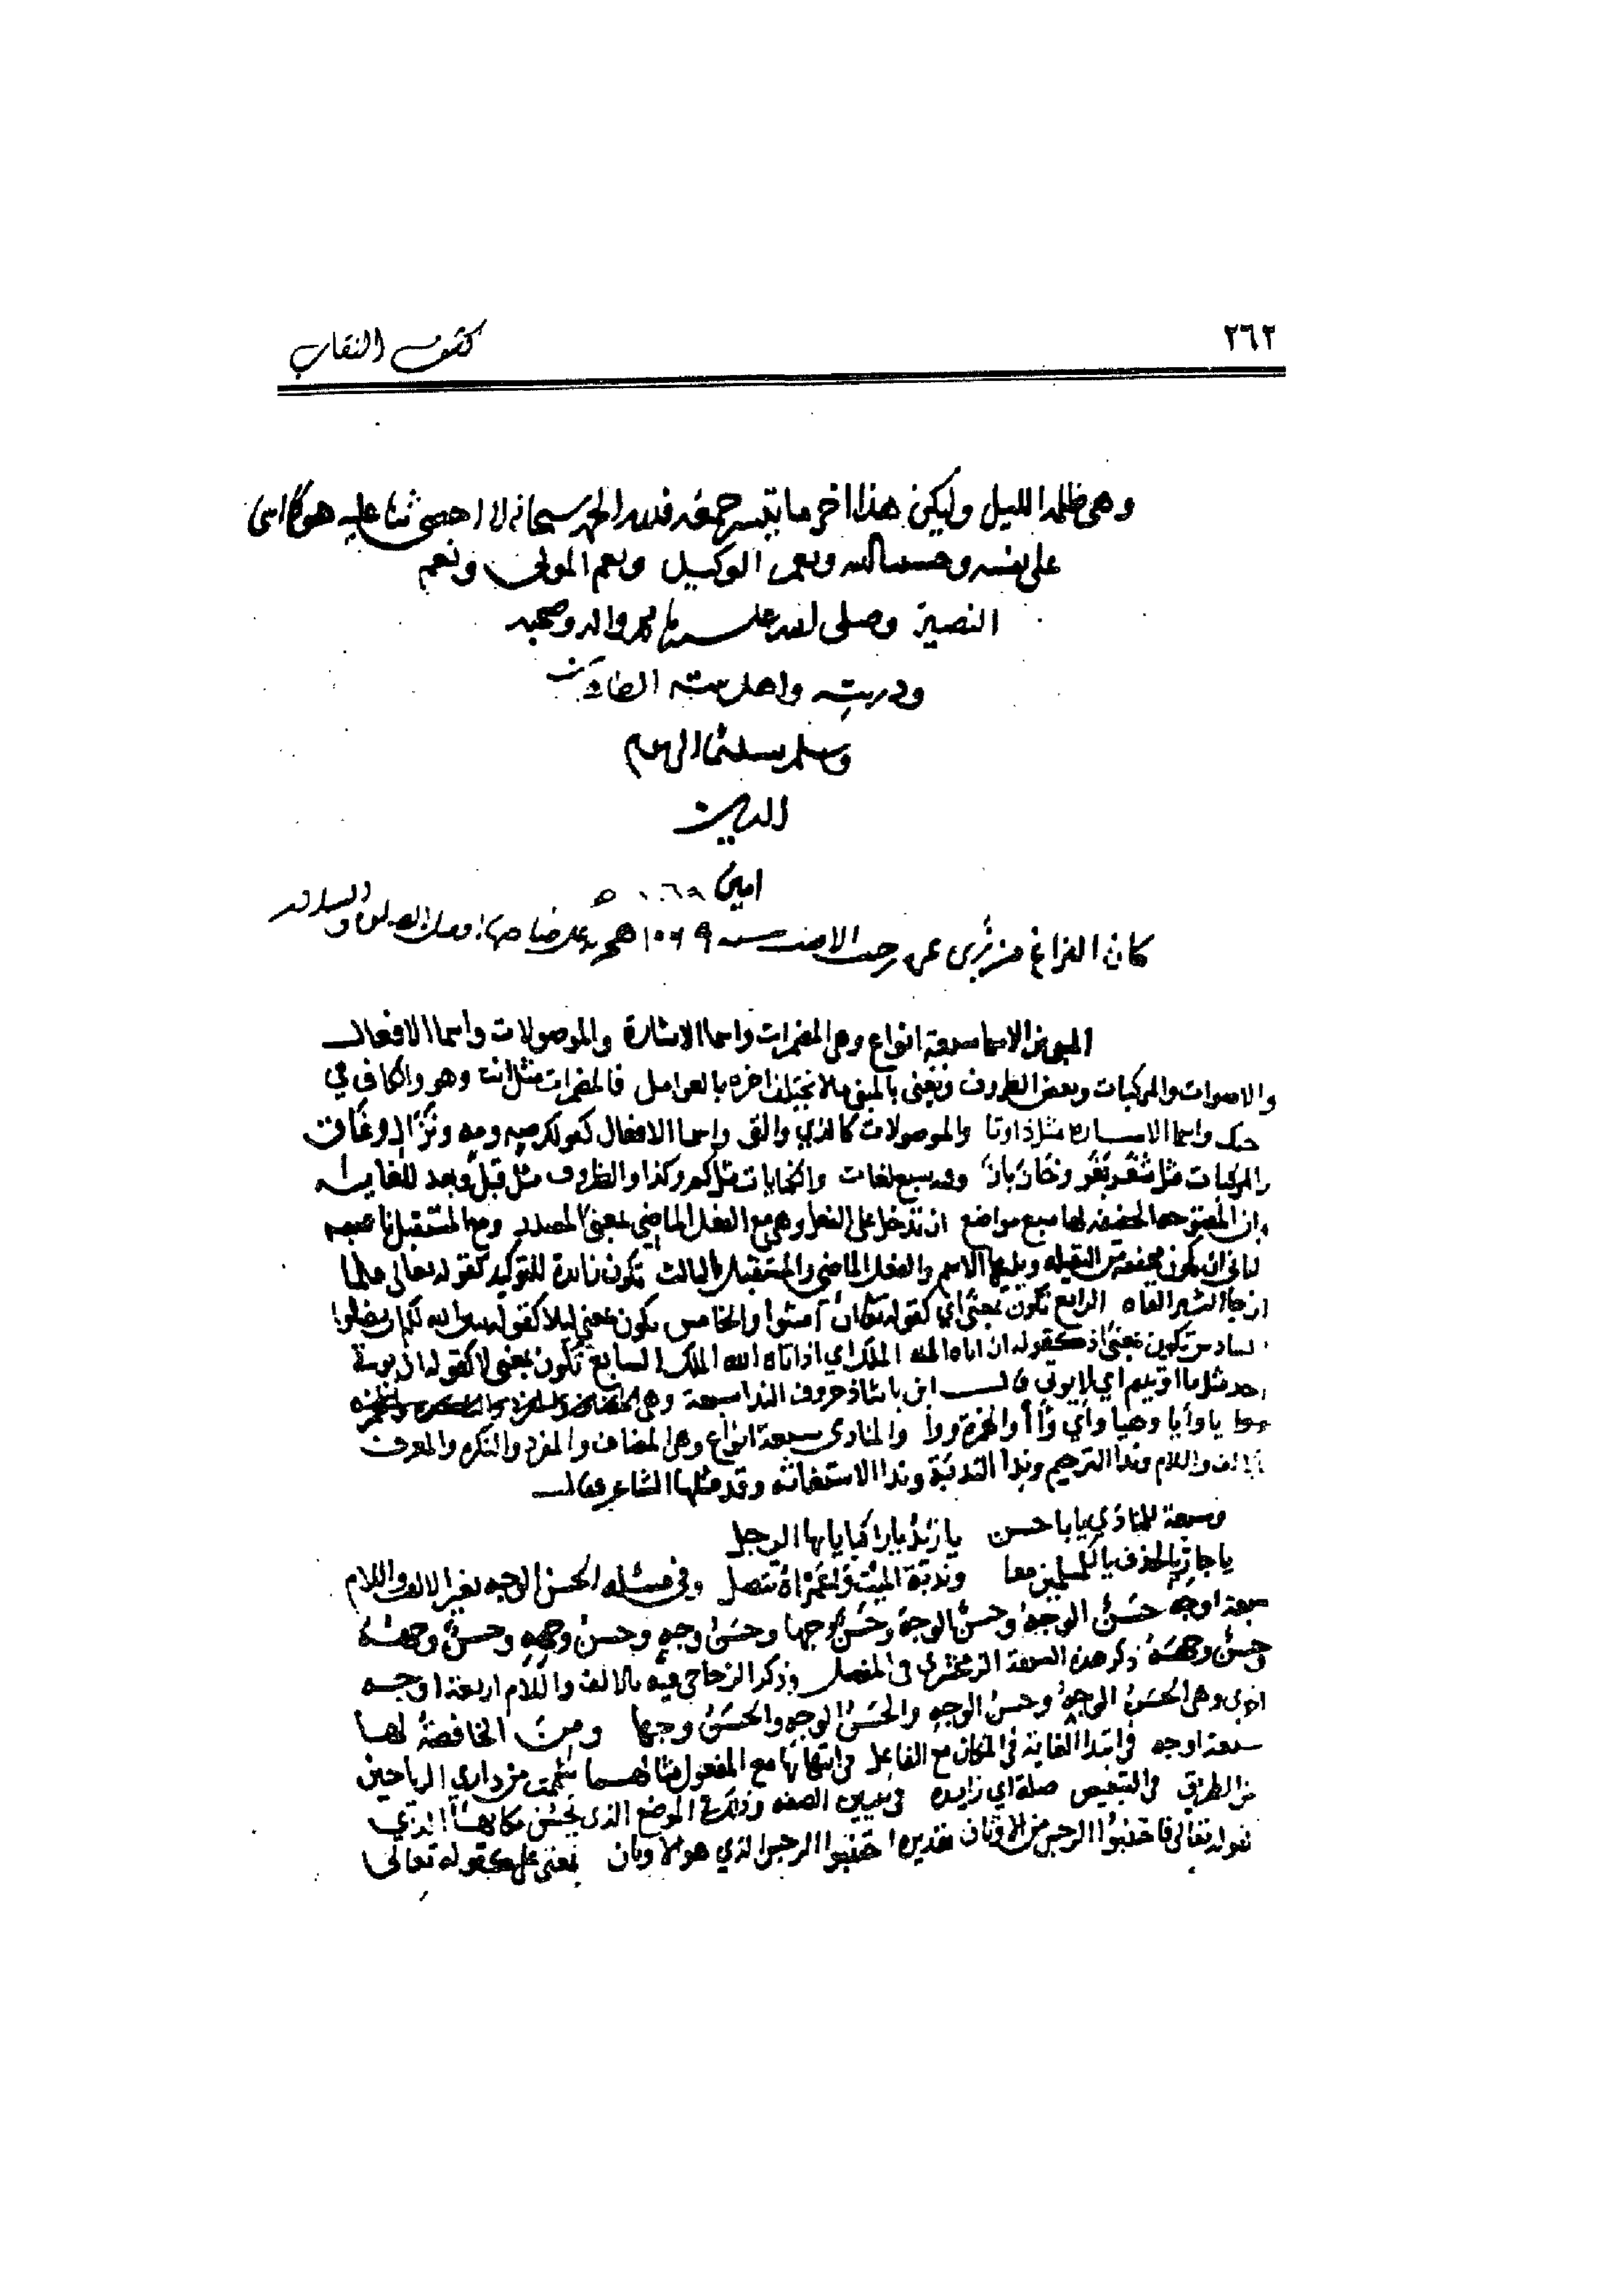 ٢٦٢
كشف النقاب
وهي ظلمة الليل وليكن هذا اخر ما تيسر جمعه فلله الحمد سبحانه لا احصي ثنا عليه هو كما اثنى
على نفسه وحسبنا الله ونعم الوكيل ونعم المولى ونعم
النصير وصلى الله على سيدنا محمد واله وصحبه
وذريته واهل بيته الطاهرين
وسلم تسليما الى يوم
الدين
امين ١٠٦٩ ه
كان الفراغ من عن رجب الاصب سنه ١٠٦٩ هجريه على صاحبها افضل الصلوة والسلام
المبني من الاسما سبعة انواع وهي المضمرات واسما الاشارة والموصولات واسما الافعال
والاصوات والمركبات وبعض الظروف ونعني بالمبني ما لا يختلف اخره بالعوامل فالمضمرات مثل انت وهو والكاف في
واسما الاشارة مثل ذا وتا والموصولات كالذي والتي واسما الافعال كقولك صه ومه ونزال وغاق
والمركبات مثل شغر بغر وخاز باز وفيه سبع لغات والكنايات مثل كم وكذا والظروف مثل قبل وبعد
ان المفتوحة المخففه لها سبع مواضع ان تدخل على الفعل وهي مع الفعل الماضي بمعنى المصدر ومع المستقبل ناصبه
الثاني ان يكون مخففة من الثقيله ويليها الاسم والفعل الماضي والمستقبل الثالث تكون زائدة للتوكيد كقوله تعالى فلما
ان جا البشير القاه الرابع تكون بمعنى اي كقوله تعالى ان امشوا والخامس يكون بمعنى ليلا كقوله يبين الله لكم ان تضلوا
السادس تكون بمعنى اذ كقوله ان اتاه الله الملك اي اذ اتاه الله الملك السابع تكون بمعنى لا كقوله ان يوتى
احد مثل ما اوتيتم اي لا يوتى قال ابن بابشاذ حروف الندا سبعة وهي
يا وأيا وهيا وأي وآ أ والهمزة ووا والمنادى سبعة انواع وهي المضاف والمفرد والنكرة والمعرف
بالالف واللام وندا الترخيم وندا الندبة وندا الاستغاثه وقد مثلها الشاعر فقال
وسبعة للمنادى يا ابا حسن يا زيد يا راكبا يا ايها الرجل
يا جار بالحذف يا للمسلمين معا وندبة الميت واعمراه تتصل وفي مسئله الحسن الوجه بغير الالف واللام
سبعة اوجه حسن الوجه وحسن الوجه وحسن وجها وحسن وجه وحسن وجهه وحسن وجهه
وحسن وجهه ذكر هذه السبعة الزمخشري في المفصل وذكر الزجاجي فيه بالالف واللام اربعة اوجه
اخرى وهي الحسن الوجه وحسن الوجه والحسن الوجه والحسن وجها ومن الخافضة لها
سبعة اوجه في ابتدا الغاية في المكان مع الفاعل في انتهائها مع المفعول مثالهما شممت من داري الرياحين
من الطريق في التبعيض صلة اي زايده في تبيين الصفه وذلك في الموضع الذي يحسن مكانها الذي
كقوله تعالى فاجتنبوا الرجس من الاوثان تقديره اجتنبوا الرجس الذي هو الاوثان بمعنى على كقوله تعالى